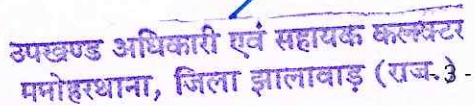 उपखण्ड अधिकारी एवं सहायक कलक्टर
मनोहरथाना, जिला झालावाड़ (राज.) - 3 -